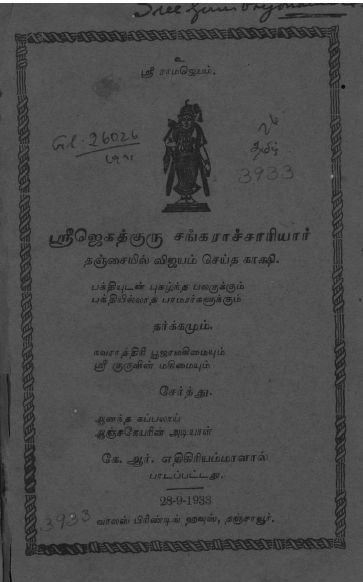 உ
ஸ்ரீ ராமஜெயம்.
தமிழ்
3933
ஸ்ரீஜெகத்குரு சங்கராச்சாரியார்
தஞ்சையில் விஜயம் செய்த காக்ஷி.
பக்தியுடன் புகழ்ந்த பலருக்கும்
பக்தியில்லாத பாமரர்களுக்கும்
தர்க்கமும்.
நவராத்திரி பூஜாமகிமையும்
ஸ்ரீ குருவின் மகிமையும்
சேர்ந்து.
ஆனந்த கப்பலாய்
ஆஞ்சநேயரின் அடியாள்
கே. ஆர். எதிகிரியம்மாளால்
பாடப்பட்டது.
28-9-1933
3933
வாலஸ் பிரிண்டிங் ஹவுஸ், தஞ்சாவூர்.